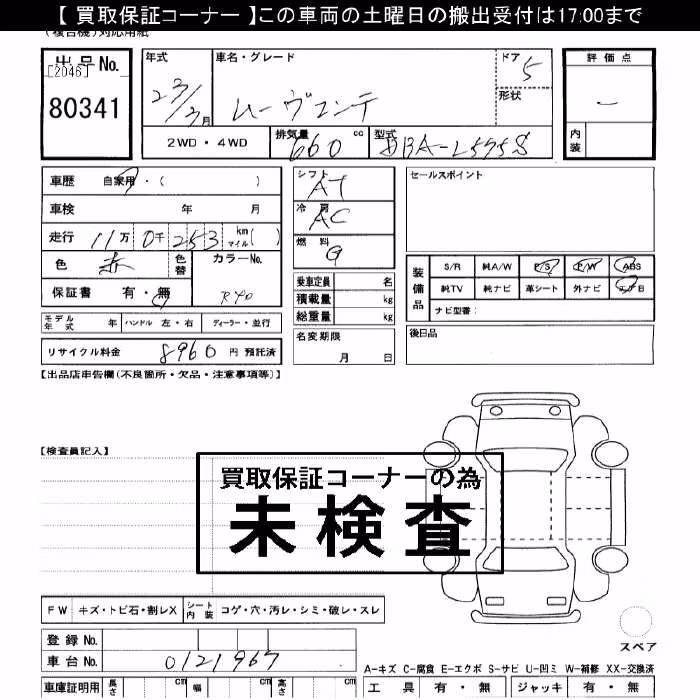 【 買取保証コーナー 】この車両の土曜日の搬出受付は17:00まで
(複合機)対応用紙
出品No. [2046] 80341
年式 23/3月
車名・グレード ムーヴコンテ
ドア 5
形状
評価点 −
内装
2WD・4WD
排気量 660 cc
型式 DBA-L575S
車歴 自家用・( )
車検 年 月
走行 11万 0千 253 km マイル( )
色 赤 色替 カラーNo. R40
保証書 有・無
シフト AT
冷房 AC
燃料 G
乗車定員 名
積載量 kg
総重量 kg
セールスポイント
装備品 S/R 純A/W P/S P/W ABS
純TV 純ナビ 革シート 外ナビ エアB
ナビ型番:
モデル年式 年 ハンドル 左・右 ディーラー・並行
名変期限 月 日
後日品
リサイクル料金 8960 円 預託済
【出品店申告欄(不良箇所・欠品・注意事項等)】
【検査員記入】
買取保証コーナーの為
未検査
FW キズ・トビ石・割レX シート内装 コゲ・穴・汚レ・シミ・破レ・スレ
登録No.
車台No. 0121967
スペア
A-キズ C-腐食 E-エクボ S-サビ U-凹ミ W-補修 XX-交換済
車庫証明用 長さ cm 幅 cm 高さ cm
工具 有・無 ジャッキ 有・無